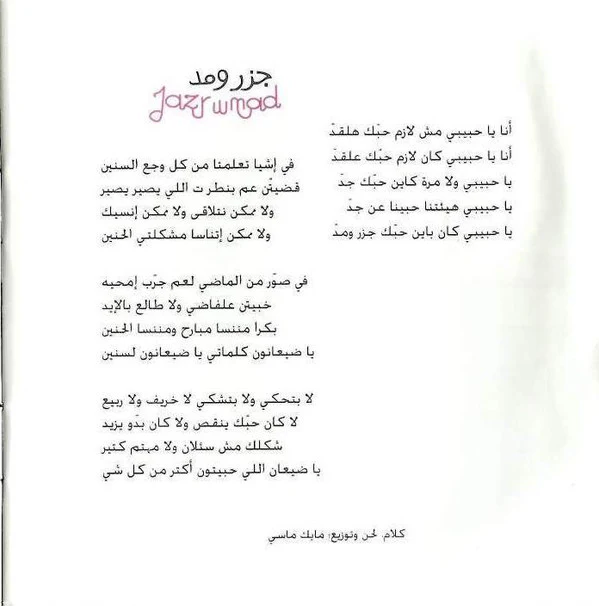 جزر ومد
Jazr w mad
أنا يا حبيبي مش لازم حبّك هلقدّ
أنا يا حبيبي كان لازم حبّك علقدّ
يا حبيبي ولا مرة كاين حبّك جدّ
يا حبيبي هيئتنا حبينا عن جدّ
يا حبيبي كان باين حبّك جزر ومدّ
في إشيا تعلمنا من كل وجع السنين
قضيتّن عم بنطرت اللي يصير يصير
ولا ممكن نتلاقى ولا ممكن إنسيك
ولا ممكن إتناسا مشكلتي الحنين
في صوّر من الماضي لعم جرّب إمحيه
خبيتن علفاضي ولا طالع بالإيد
بكرا مننسا مبارح ومننسا الحنين
يا ضيعانون كلماتي يا ضيعانون لسنين
لا بتحكي ولا بتشكي لا خريف ولا ربيع
لا كان حبّك ينقص ولا كان بدّو يزيد
شكلك مش سئلان ولا مهتم كتير
يا ضيعان اللي حبيتون أكتر من كل شي
كلام، لحن وتوزيع: مايك ماسي